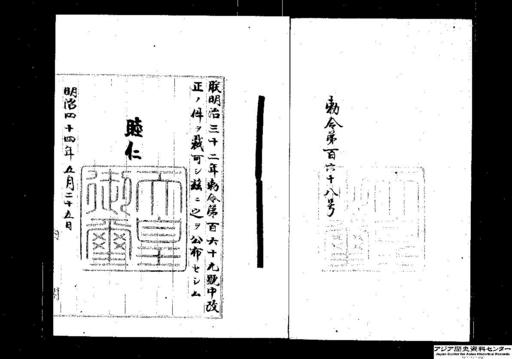 勅令第百六十八号
朕明治三十二年勅令第百六十九號中改
正ノ件ヲ裁可シ玆ニ之ヲ公布セシム
睦仁
天皇
御璽
明治四十四年五月二十五日
アジア歴史資料センター
Japan Center for Asian Historical Records